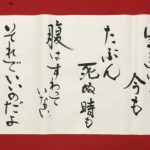 今も
たぶん
死ぬ時も
腹はすわって
いない
それでいいのだよ